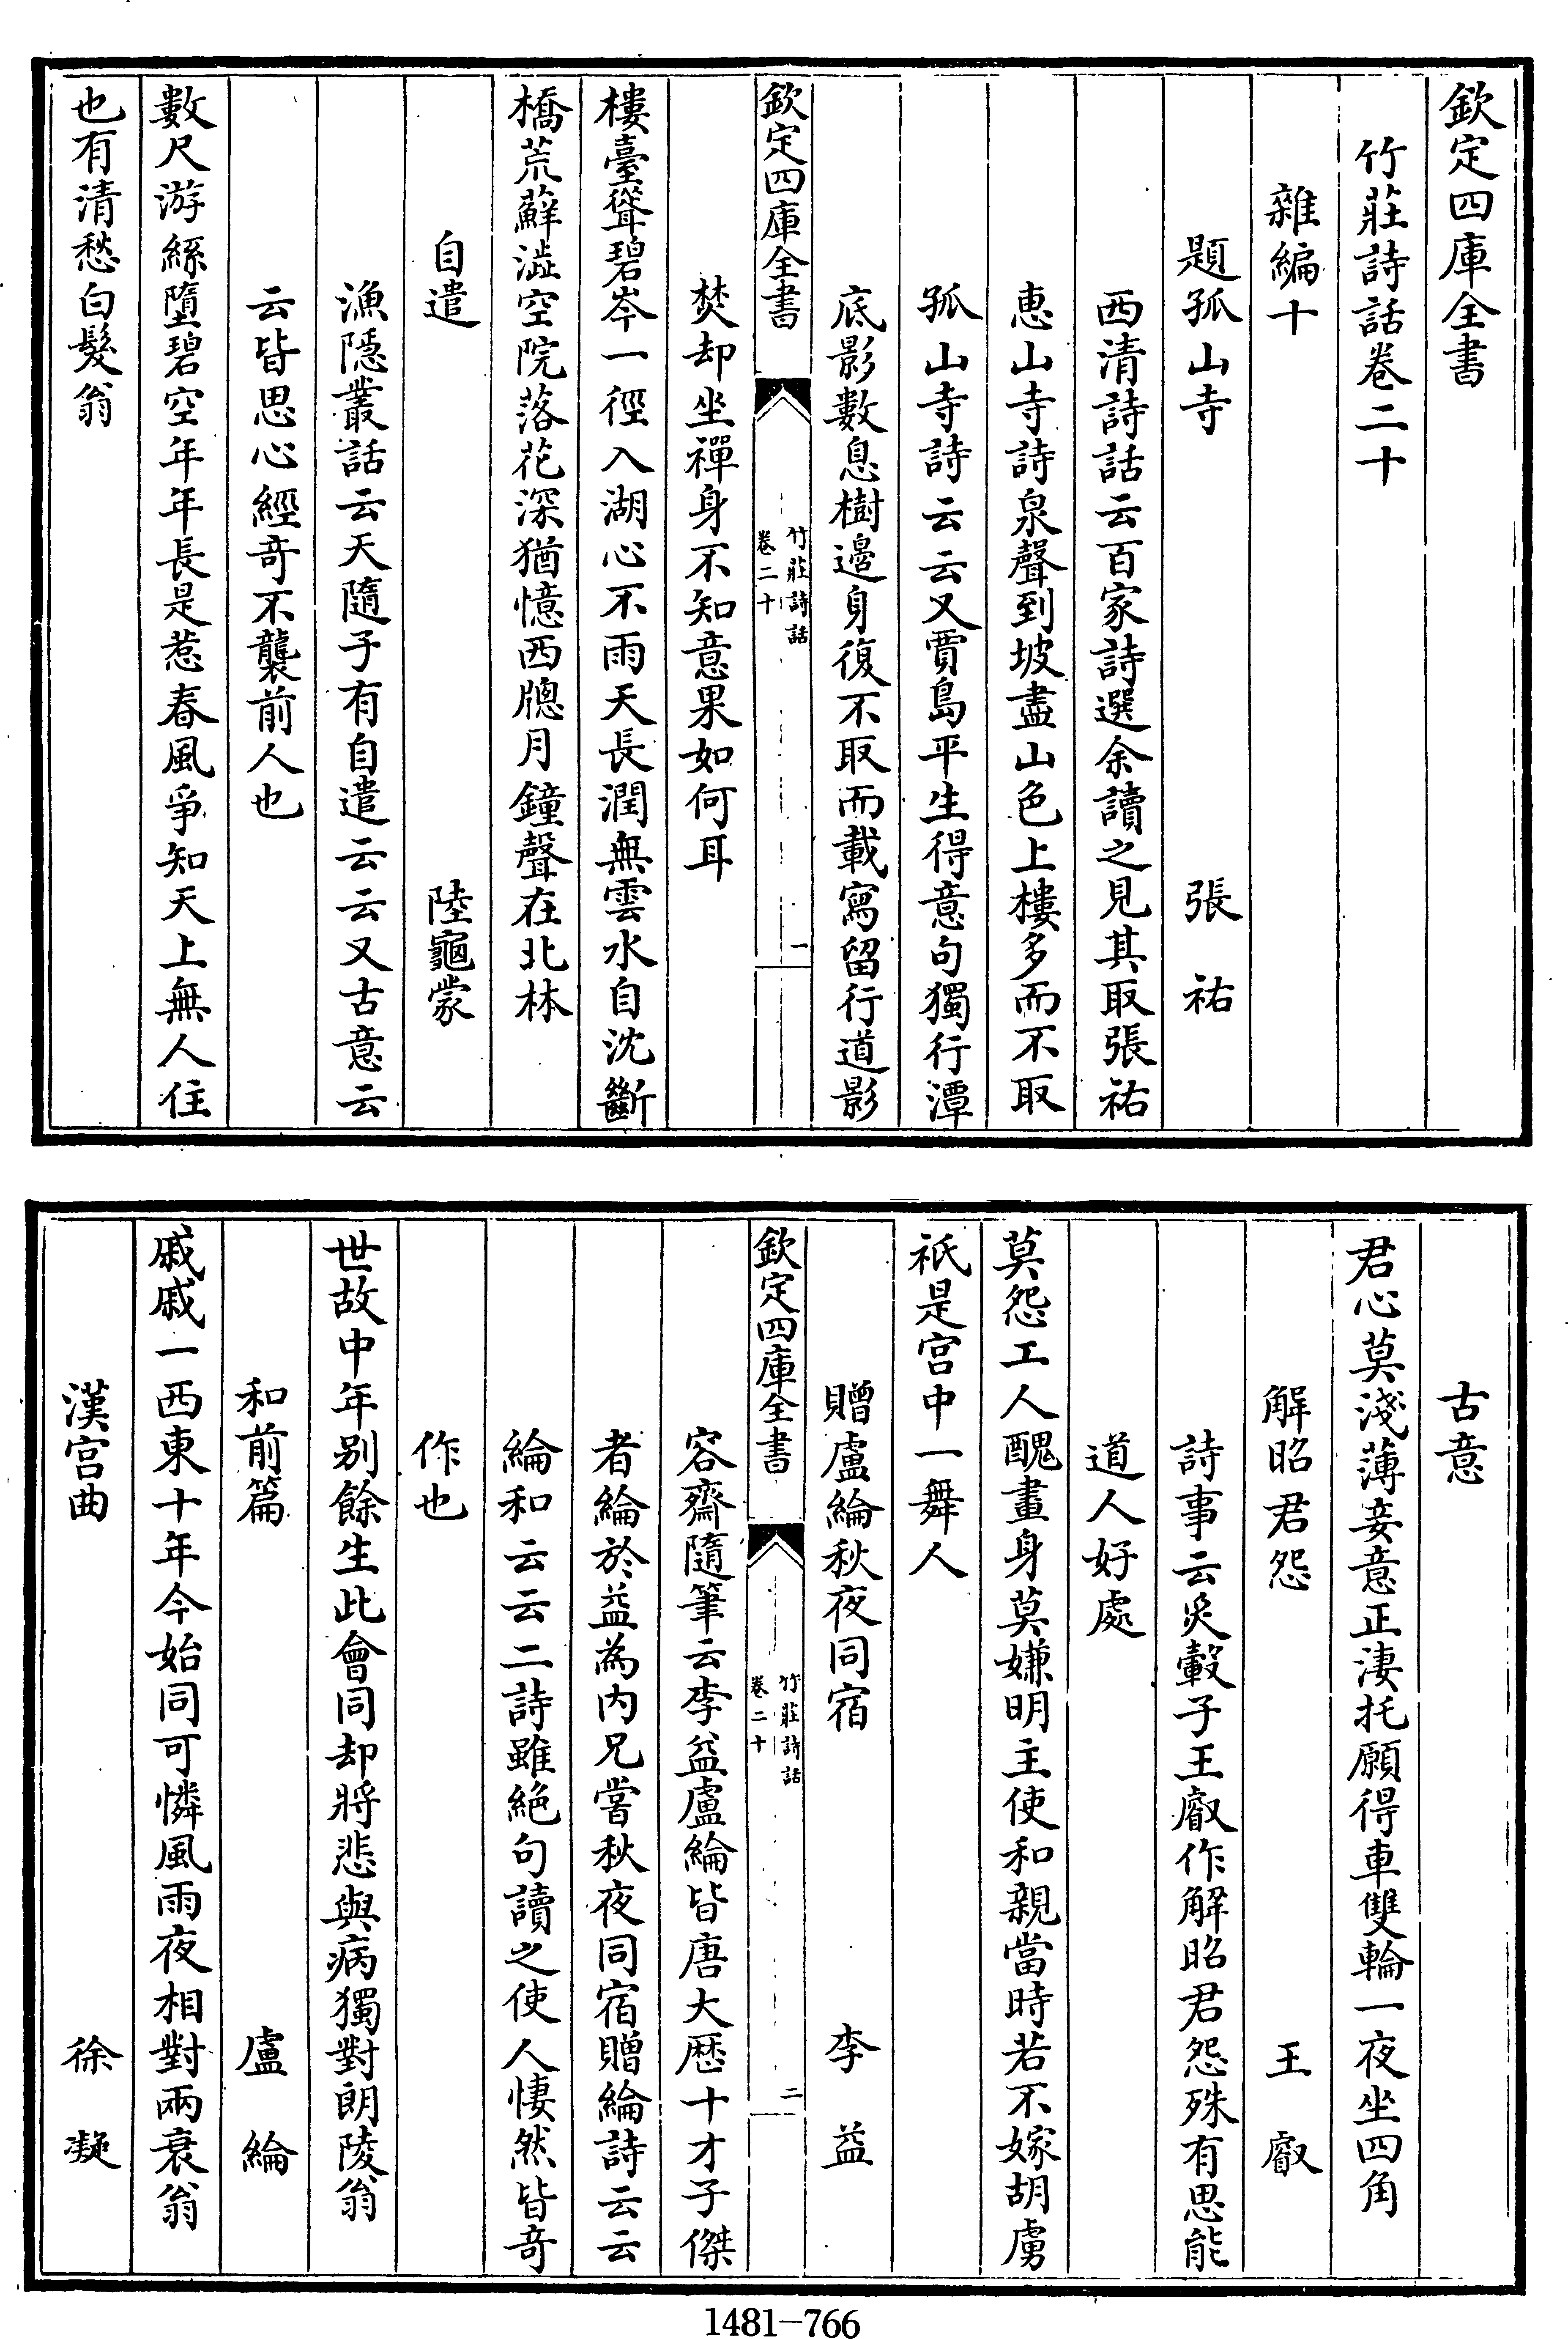 欽定四庫全書
竹莊詩話卷二十
雜編十
題孤山寺　張祐
西清詩話云百家詩選余讀之見其取張祐
惠山寺詩泉聲到坡盡山色上樓多而不取
孤山寺詩云云又賈島平生得意句獨行潭
底影數息樹邊身復不取而載寫留行道影
欽定四庫全書
竹莊詩話
卷二十
一
焚却坐禪身不知意果如何耳
樓臺聳碧岑一徑入湖心不雨天長潤無雲水自沈斷
橋荒蘚澁空院落花深猶憶西牕月鐘聲在北林
自遣　陸龜蒙
漁隱叢話云天隨子有自遣云云又古意云
云皆思心經竒不襲前人也
數尺游絲墮碧空年年長是惹春風爭知天上無人住
也有清愁白髮翁
古意
君心莫淺薄妾意正淒托願得車雙輪一夜坐四角
解昭君怨　王叡
詩事云炙轂子王叡作解昭君怨殊有思能
道人好處
莫怨工人醜畫身莫嫌明主使和親當時若不嫁胡虜
祇是宫中一舞人
贈盧綸秋夜同宿　李益
欽定四庫全書
竹莊詩話
卷二十
二
容齋隨筆云李益盧綸皆唐大歴十才子傑
者綸於益為内兄嘗秋夜同宿贈綸詩云云
綸和云云二詩雖絶句讀之使人悽然皆竒
作也
世故中年别餘生此會同却將悲與病獨對朗陵翁
和前篇　盧綸
戚戚一西東十年今始同可憐風雨夜相對兩衰翁
漢宫曲　徐凝
1481-766